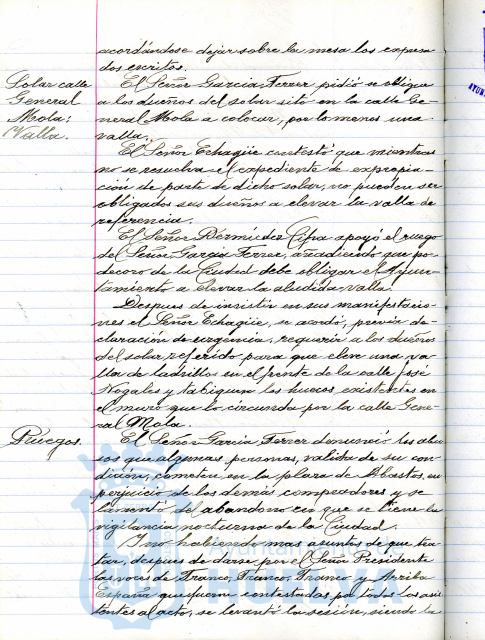 acordándose dejar sobre la mesa los expresa
dos escritos.
Solar calle
General
Mola:
Valla.
El Señor Garcia Ferrer pidió se obligue
a los dueños del solar sito en la calle Ge-
neral Mola a colocar, por lo menos una
valla.
El Señor Echagüe contestó que mientras
no se resuelva el expediente de expropia-
ción de parte de dicho solar, no pueden ser
obligados sus dueños a elevar la valla de
referencia.
El Señor Bermúdez Cifra apoyó el ruego
del Señor Garcia Ferrer, añadiendo que por
decoro de la Ciudad debe obligar el Ayun-
tamiento a elevar la aludida valla.
Despues de insistir en sus manifestacio-
nes el Señor Echagüe, se acordó, previa de-
claración de urgencia, requerir a los dueños
del solar referido para que eleve una va-
lla de ladrillos en el frente de la calle José
Nogales y tabiquen los huecos existentes en
el muro que lo circunda por la calle Gene-
ral Mola.
Ruegos.
El Señor Garcia Ferrer denunció los abu-
sos que algunas personas, valida de su con
dición, cometen en la plaza de Abastos, en
perjuicio de los demás compradores y se
lamentó del abandono en que se tiene la
vigilancia nocturna de la Ciudad.
Y no habiendo mas asuntos de que tra-
tar, despues de darse por el Señor Presidente
las voces de Franco, Franco, Franco y Arriba
España que fueron contestadas por todos los asis
tentes al acto, se levantó la sesión, siendo la
Ayuntamiento de